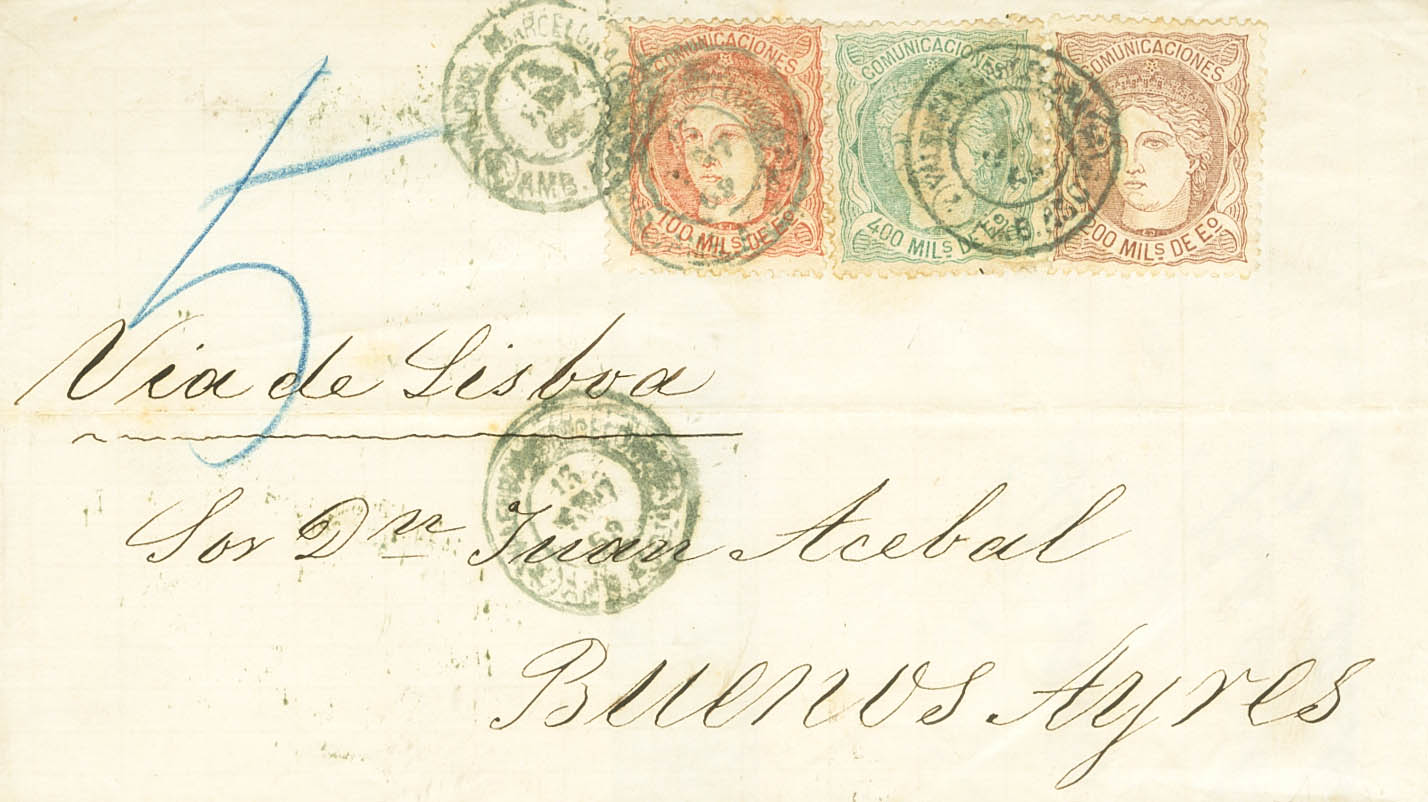 COMUNICACIONES
100 MILS DE Eo
COMUNICACIONES
400 MILS DE
COMUNICACIONES
200 MILS DE Eo
BARCELONA
AMB.
5
Via de Lisboa
Sor Dn Juan Acebal
Buenos Ayres